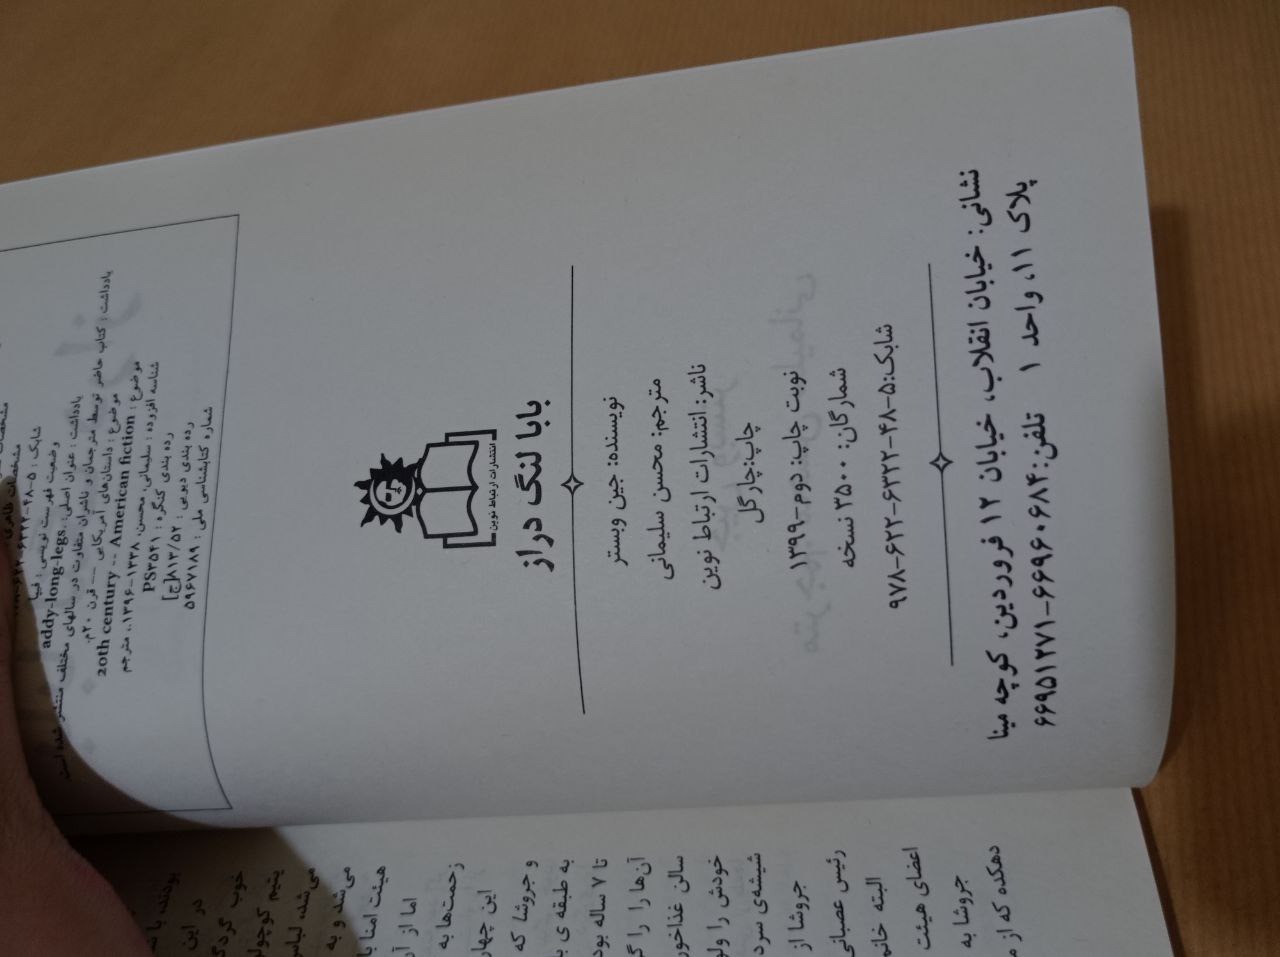 addy-long-legs
یادداشت : عنوان اصلی:
یادداشت : کتاب حاضر توسط مترجمان و ناشران متفاوت در سالهای مختلف منتشر شده است.
موضوع : داستان‌های آمریکایی -- قرن ۲۰م.
موضوع : 20th century -- American fiction
شناسه افزوده : سلیمانی، محسن، ۱۳۳۸-۱۳۹۶.، مترجم
رده بندی کنگره : PS۳۵۴۱
رده بندی دیویی : ۸۱۳/۵۲[ج]
شماره کتابشناسی ملی : ۵۹۶۷۱۸۹
انتشارات ارتباط نوین
بابا لنگ دراز
نویسنده: جین وبستر
مترجم: محسن سلیمانی
ناشر: انتشارات ارتباط نوین
چاپ:چارگل
نوبت چاپ: دوم-۱۳۹۹
شمارگان: ۳۵۰۰ نسخه
شابک:۵-۴۸-۶۳۲۲-۶۲۲-۹۷۸
نشانی: خیابان انقلاب، خیابان ۱۲ فروردین، کوچه مینا
پلاک ۱۱، واحد ۱ تلفن:۶۶۹۶۰۶۸۴-۶۶۹۵۱۲۷۱
بودند، با
در این
خوب گردگ
یتیم کوچولو
می‌شد، لباس
می‌شد و به
هیئت امنا با
اما از آن
زحمت‌ها به
این چهار
و جروشا که
به طبقه ی
تا ۷ ساله بود
آن‌ها را
سالن غذاخور
خودش را ولو
شیشه‌ی سرد
جروشا از
رئیس عصبانی
البته خانم
اعضای هیئت
جروشا به
دهکده که از